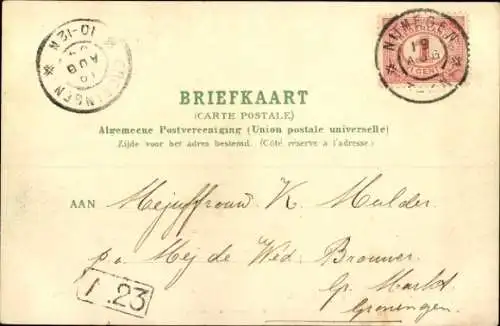 NIJMEGEN
10-12 M
AUG
GRONINGEN
1
CENT
BRIEFKAART
(CARTE POSTALE)
Algemeene Postvereeniging (Union postale universelle)
Zijde voor het adres bestemd. (Côté réservé à l'adresse.)
AAN Mejuffrouw K. Mulder
p.a Mej de Wed. Brouwer
Gr. Markt
Groningen.
23